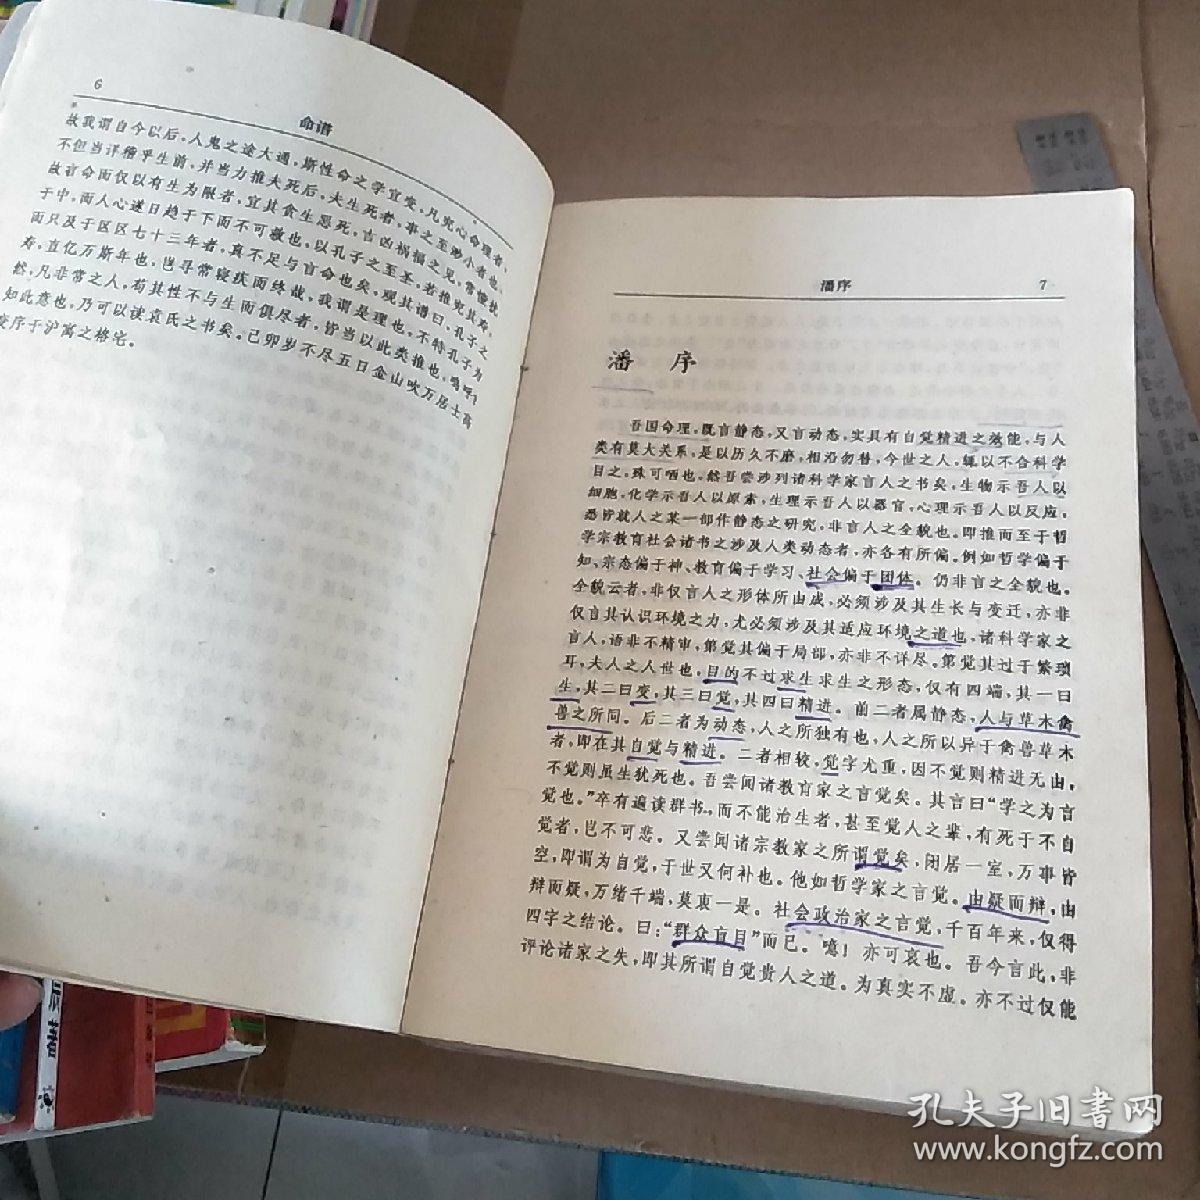 6
命谱
故我谓自今以后，人鬼之途大通，斯性命之学宜变，凡究心命理者、
不但当详稽乎生前，并当力推夫死后，夫生死者，事之至渺小者也、
故言命而仅以有生为限者，宜其贪生恶死，吉凶祸福之见，常憧扰
于中，而人心遂日趋于下而不可救也，以孔子之至圣，若推究其寿，
而只及于区区七十三年者，真不足与言命也矣，观其谱曰，孔子之
寿，直亿万斯年也，岂寻常寝疾而终哉，我谓是理也，不特孔子为
然，凡非常之人，苟其性不与生而俱尽者，皆当以此类推也，呜呼！
知此意也，乃可以读袁氏之书矣，己卯岁不尽五日金山吹万居士高
燮序于沪寓之格宅。
潘序
7
潘 序
吾国命理，既言静态，又言动态，实具有自觉精进之效能，与人
类有莫大关系，是以历久不磨，相沿勿替，今世之人，辄以不合科学
目之，殊可哂也，然吾尝涉列诸科学家言人之书矣，生物示吾人以
细胞，化学示吾人以原素，生理示吾人以器官，心理示吾人以反应，
悉皆就人之某一部作静态之研究，非言人之全貌也。即推而至于哲
学宗教育社会诸书之涉及人类动态者，亦各有所偏。例如哲学偏于
知、宗态偏于神、教育偏于学习、社会偏于团体。仍非言之全貌也。
全貌云者，非仅言人之形体所由成，必须涉及其生长与变迁，亦非
仅言其认识环境之力，尤必须涉及其适应环境之道也，诸科学家之
言人，语非不精审，第觉其偏于局部，亦非不详尽。第觉其过于繁琐
耳，夫人之人世也，目的不过求生求生之形态，仅有四端，其一曰
生，其二曰变，其三曰觉，其四曰精进。前二者属静态，人与草木禽
兽之所同。后二者为动态，人之所独有也，人之所以异于禽兽草木
者，即在其自觉与精进。二者相较，觉字尤重，因不觉则精进无由，
不觉则虽生犹死也。吾尝闻诸教育家之言觉矣。其言曰“学之为言
觉也。”卒有遍读群书，而不能治生者，甚至觉人之辈，有死于不自
觉者，岂不可悲。又尝闻诸宗教家之所谓觉矣，闭居一室，万事皆
空，即谓为自觉，于世又何补也。他如哲学家之言觉。由疑而辩，由
辩而疑，万绪千端，莫衷一是。社会政治家之言觉，千百年来，仅得
四字之结论。曰：“群众盲目”而已。噫！亦可哀也。吾今言此，非
评论诸家之失，即其所谓自觉贵人之道。为真实不虚。亦不过仅能
孔夫子旧書网
www.kongfz.com